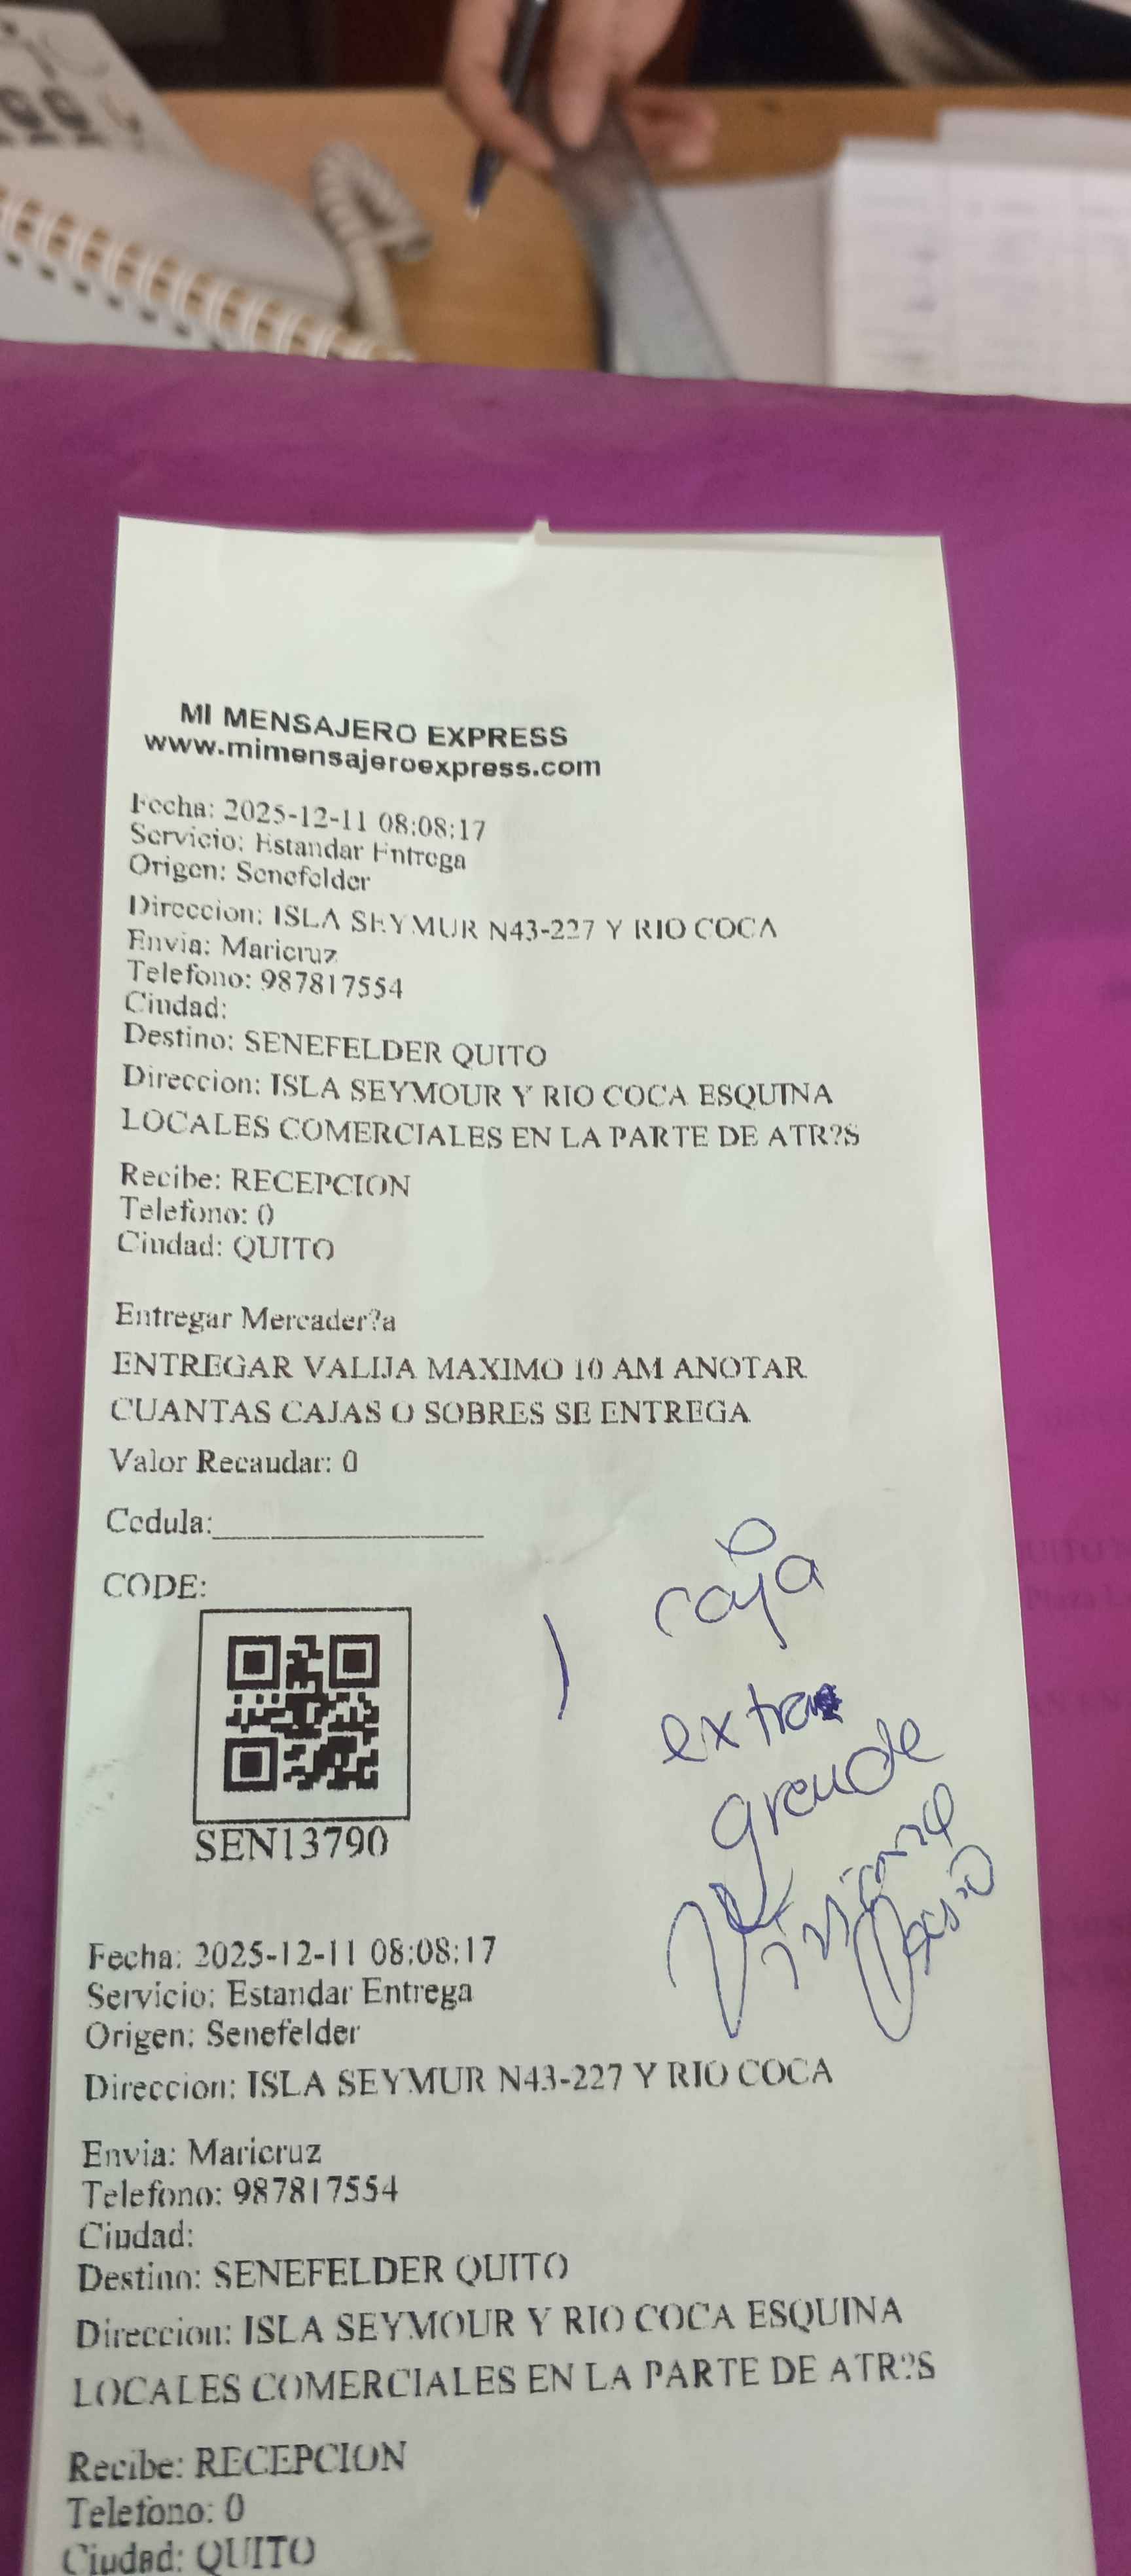 MI MENSAJERO EXPRESS
www.mimensajeroexpress.com
Fecha: 2025-12-11 08:08:17
Servicio: Estandar Entrega
Origen: Senefelder
Direccion: ISLA SEYMUR N43-227 Y RIO COCA
Envia: Maricruz
Telefono: 987817554
Ciudad:
Destino: SENEFELDER QUITO
Direccion: ISLA SEYMOUR Y RIO COCA ESQUINA
LOCALES COMERCIALES EN LA PARTE DE ATR?S
Recibe: RECEPCION
Telefono: 0
Ciudad: QUITO
Entregar Mercader?a
ENTREGAR VALIJA MAXIMO 10 AM ANOTAR
CUANTAS CAJAS O SOBRES SE ENTREGA
Valor Recaudar: 0
Cedula:
CODE:
1 caja
extra
grande
SEN13790
Fecha: 2025-12-11 08:08:17
Servicio: Estandar Entrega
Origen: Senefelder
Direccion: ISLA SEYMUR N43-227 Y RIO COCA
Envia: Maricruz
Telefono: 987817554
Ciudad:
Destino: SENEFELDER QUITO
Direccion: ISLA SEYMOUR Y RIO COCA ESQUINA
LOCALES COMERCIALES EN LA PARTE DE ATR?S
Recibe: RECEPCION
Telefono: 0
Ciudad: QUITO